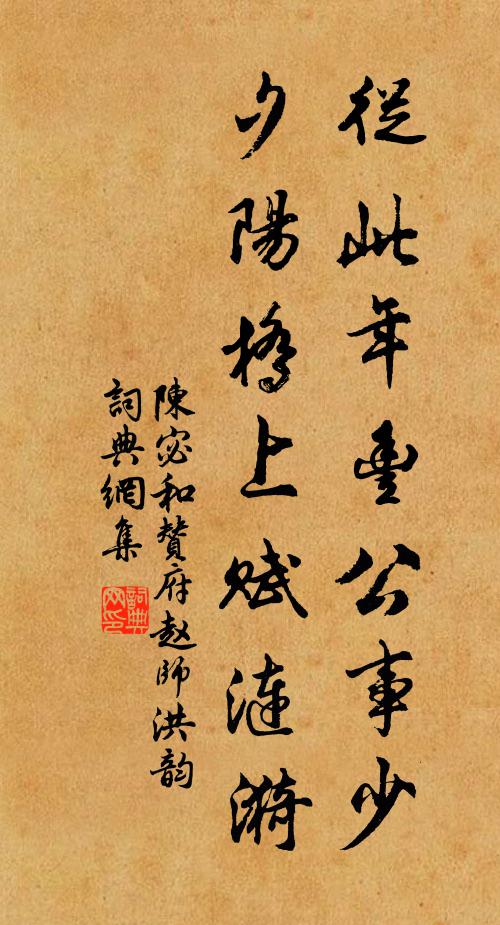 從此年豐公事少
夕陽橋上賦漣漪
陳宓和贊府赵師洪韵
詞典網集
詞典网印